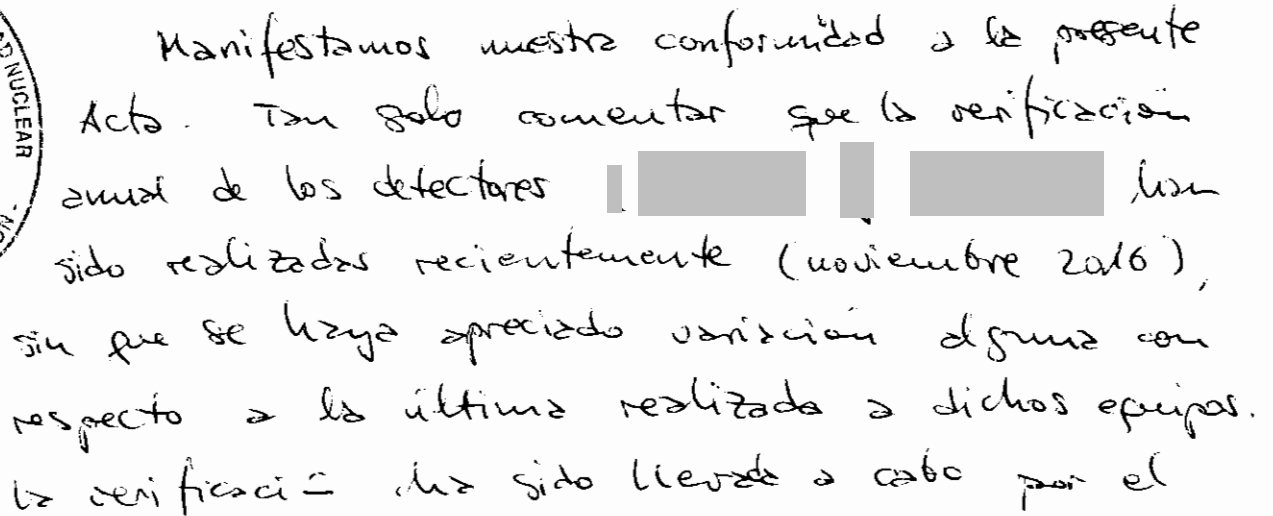 Manifestamos nuestra conformidad a la presente
Acta. Tan solo comentar que la verificación
anual de los detectores han
sido realizadas recientemente (noviembre 2016),
sin que se haya apreciado variación alguna con
respecto a la última realizada a dichos equipos.
la verificación ha sido llevada a cabo por el
AD NUCLEAR